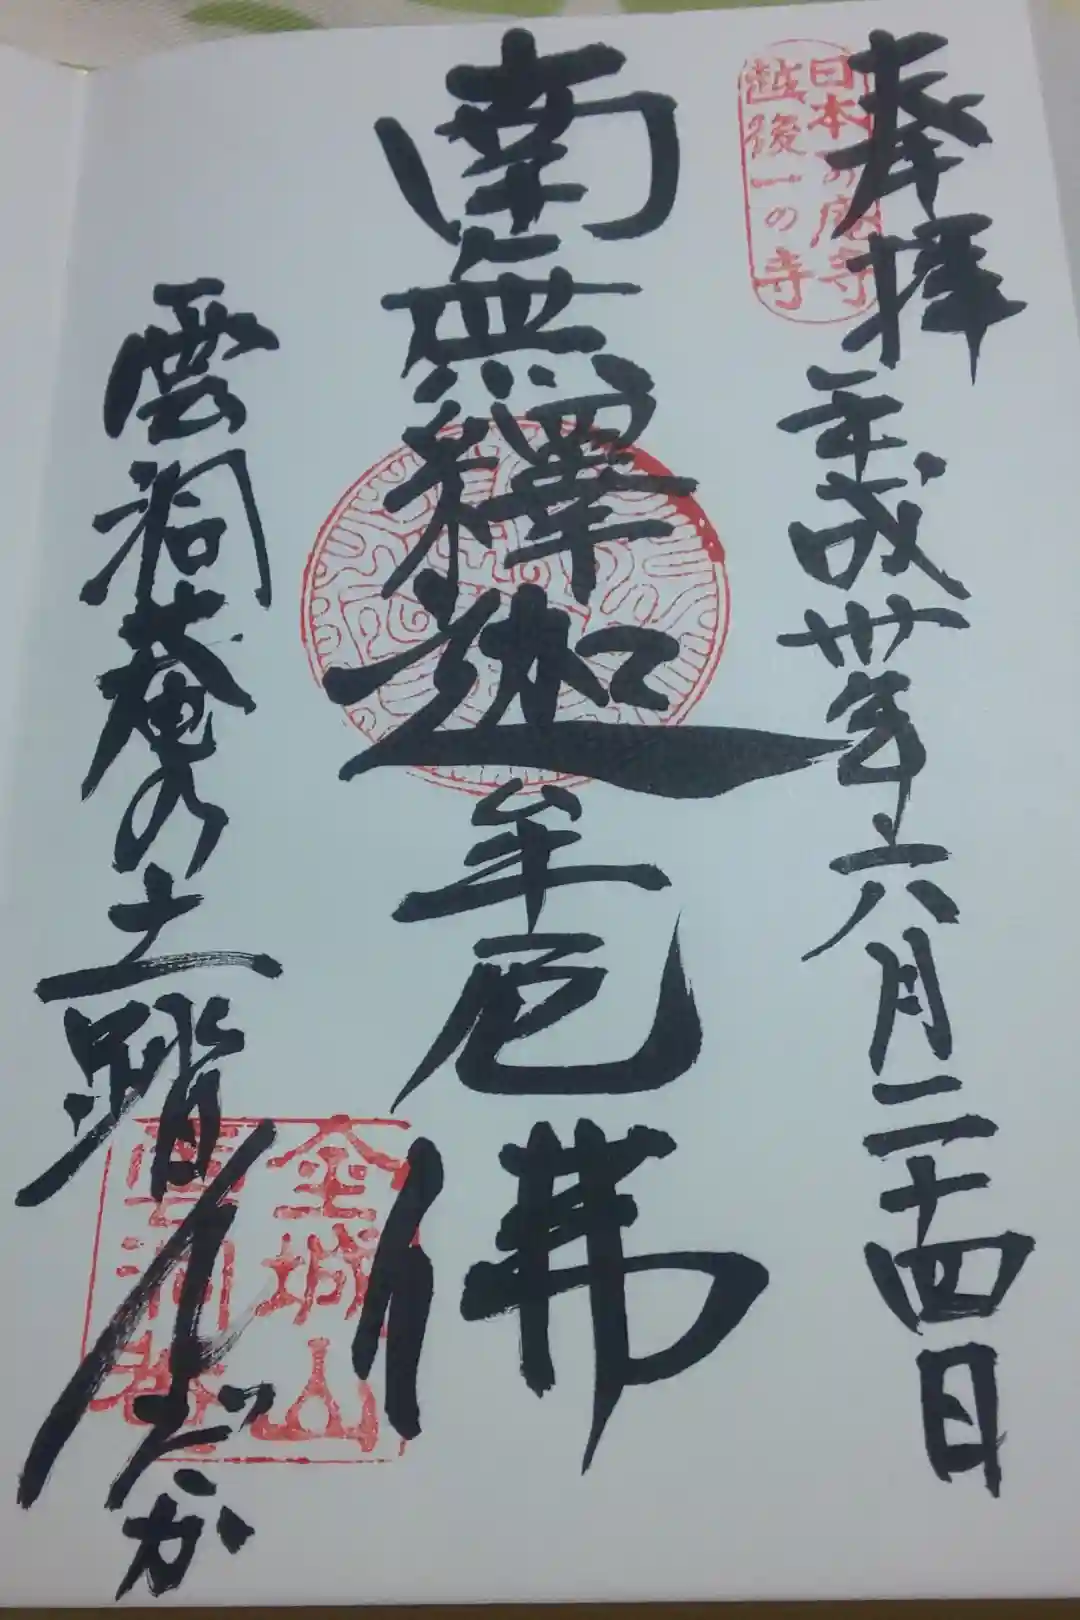 奉拝
平成卅年六月二十四日
日本一の庵寺
越後一の寺
南無釋迦牟尼佛
雲洞庵の土踏んだか
金城山
雲洞菴